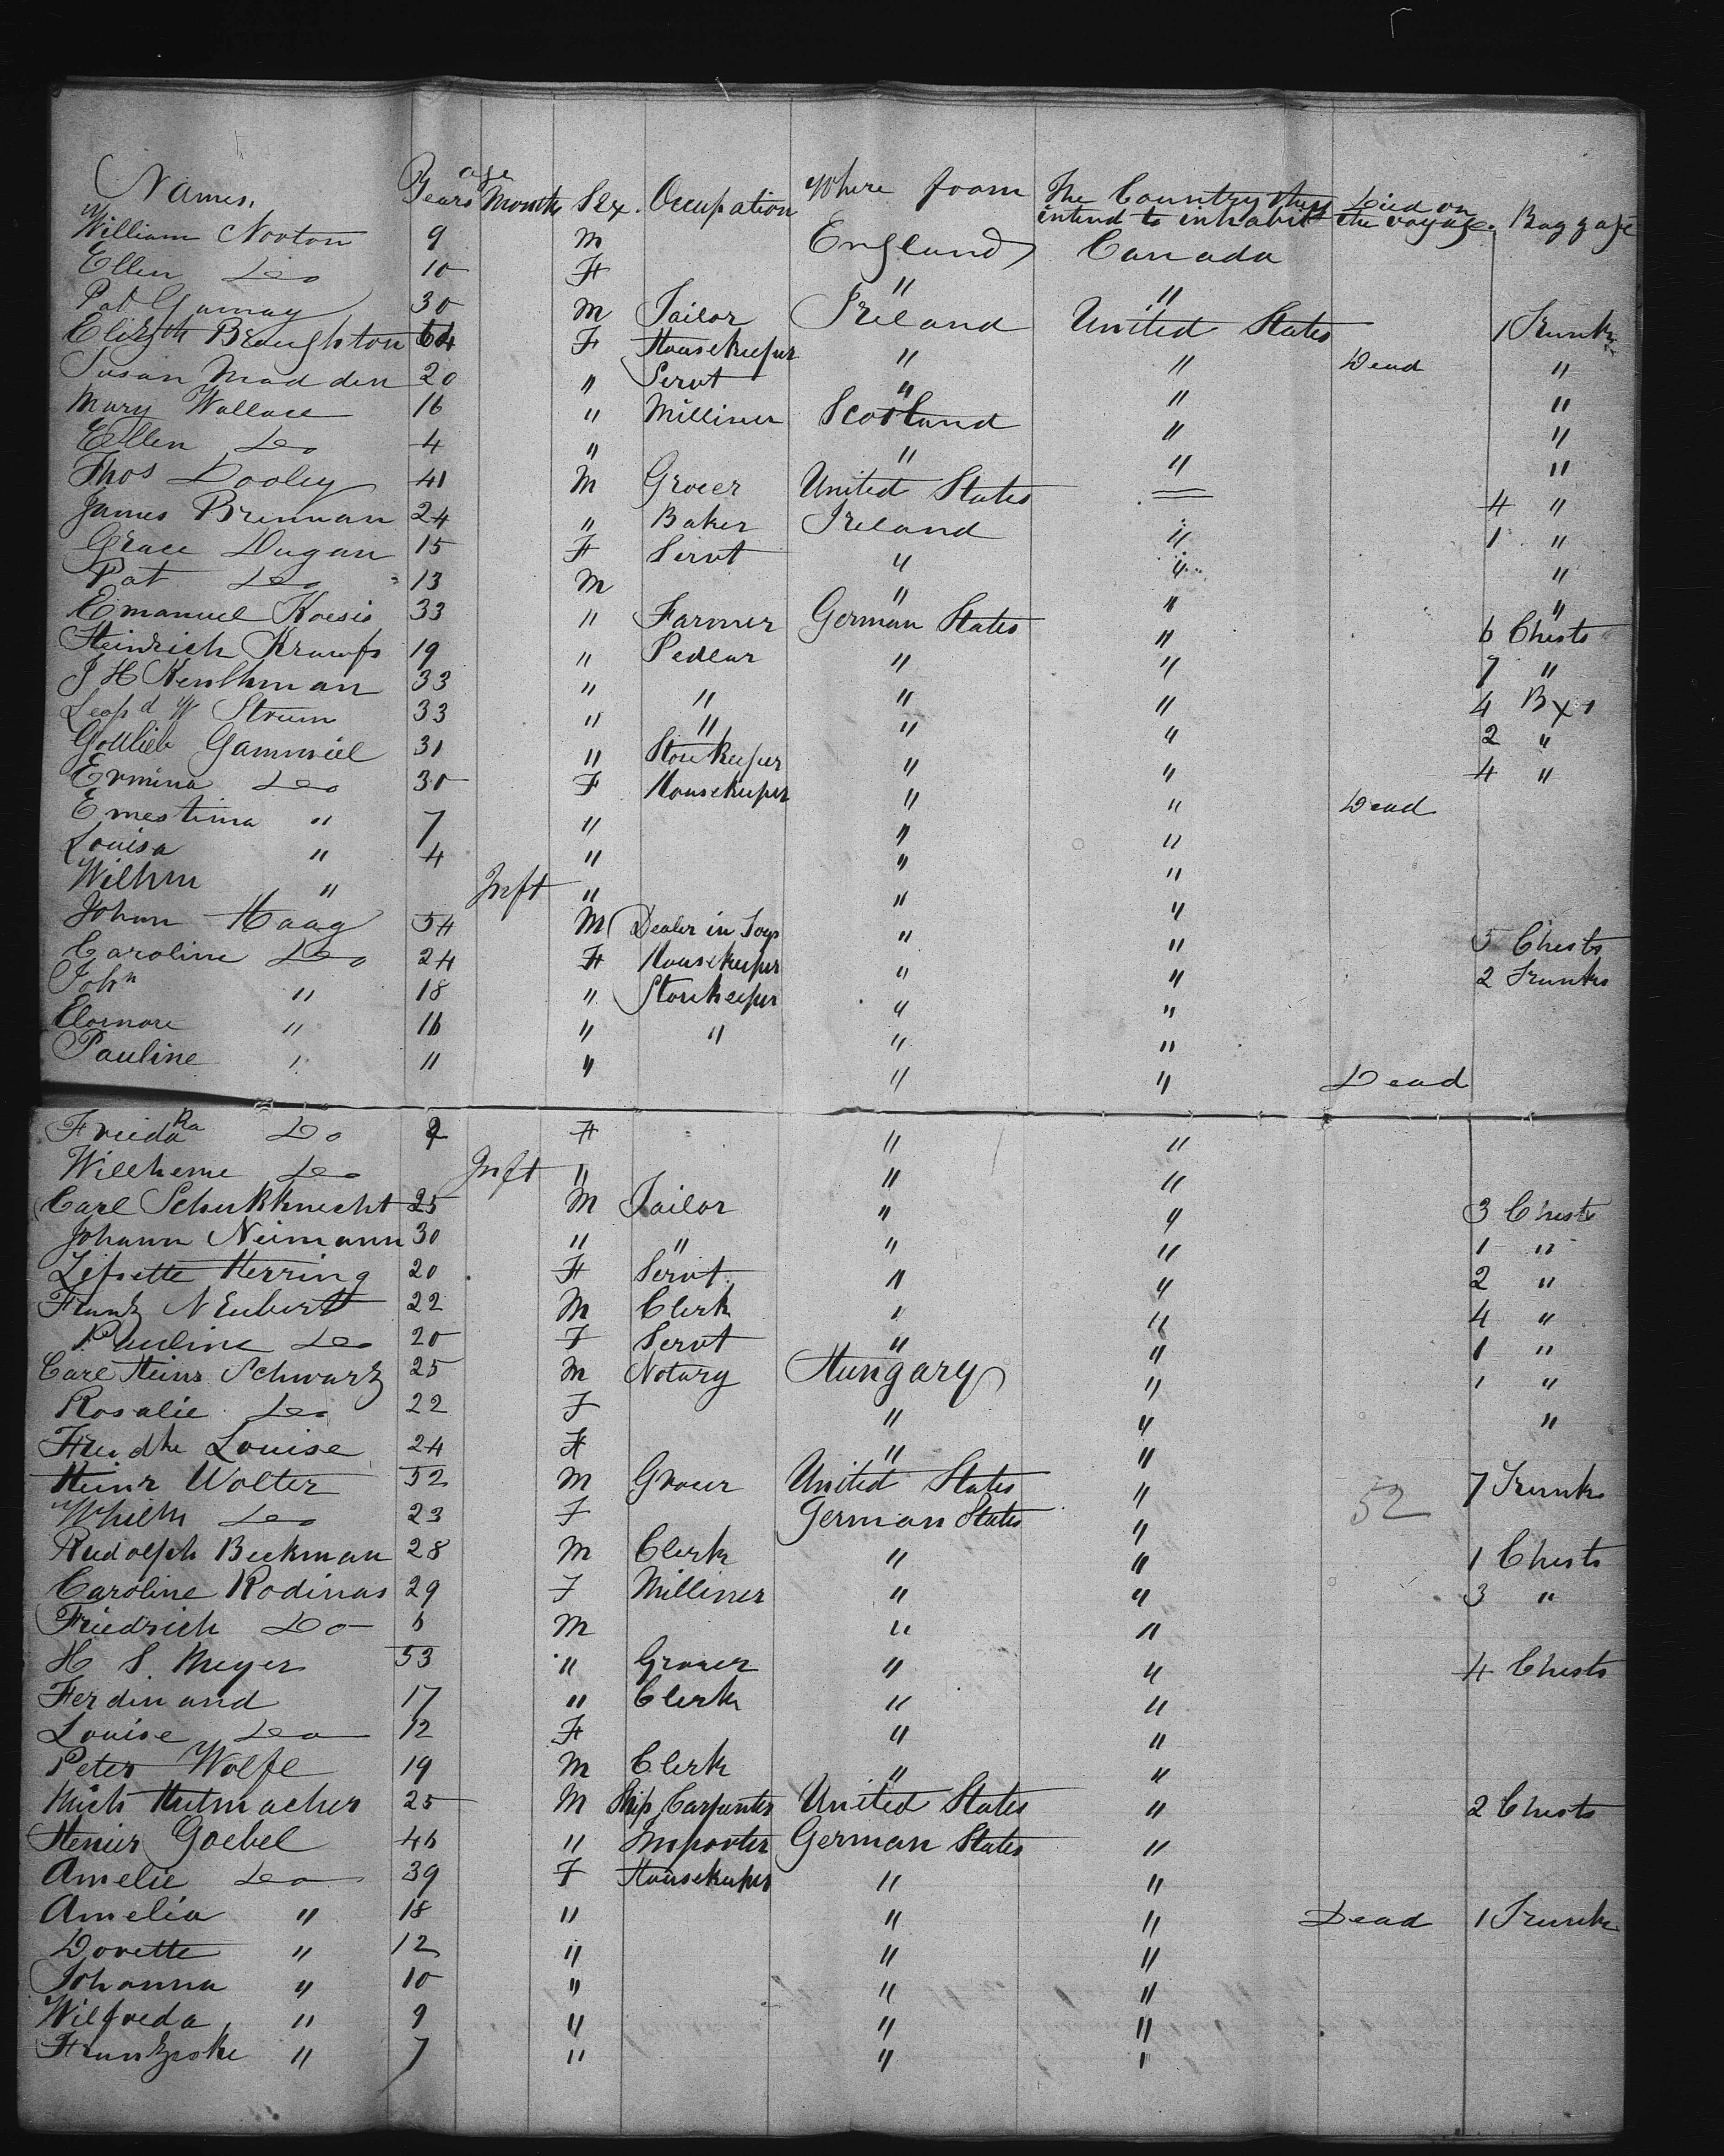 Names. age Years Months Sex. Occupation Where from The Country they intend to inhabit Died on the voyage. Baggage
William Norton 9 M England Canada
Ellen Do 10 F " "
Pat 30 M Tailor Ireland United States 1 Trunk
Elizth Broughton 64 F Housekeeper " " Dead "
Susan Madden 20 " Servt " " "
Mary Wallace 16 " Milliner Scotland " "
Ellen Do 4 " " " "
Thos Dooley 41 M Grocer United States = 4 "
James Brennan 24 " Baker Ireland " 1 "
Grace Dugan 15 F Servt " " "
Pat Do 13 M " " "
Emanuel Koesis 33 " Farmer German States " 6 Chests
Heinrich 19 " Pedlar " " 7 "
J H 33 " " " " 4 Bxs
Leopd W Strum 33 " " " " 2 "
Gottlieb Gammiel 31 " Storekeeper " " 4 "
Ermina Do 30 F Housekeeper " " Dead
Ernestina " 7 " " "
Louisa " 4 " " "
Wilhm " Inft " " "
Johan Haag 54 M Dealer in Toys " " 5 Chests
Caroline Do 24 F Housekeeper " " 2 Trunks
John " 18 " Storekeeper " "
Elornore " 16 " " " "
Pauline " 11 " " " Dead
Frieda Ra Do 9 F " "
Willheme Do Inft " " "
Carl Schukknecht 25 M Tailor " " 3 Chests
Johann Neimann 30 " " " " 1 "
Lissette Herring 20 F Servt " " 2 "
Frank Neubert 22 M Clerk " " 4 "
Pauline Do 20 F Servt " " 1 "
Carl Heinr Schwartz 25 M Notary Hungary " 1 "
Rosalie Do 22 F " " "
Louise 24 F " "
Heinr Wolter 52 M Grocer United States " 7 Trunks
Do 23 F German States " 52
Rudolph Beckman 28 M Clerk " " 1 Chests
Caroline Rodinas 29 F Milliner " " 3 "
Friedrich Do 6 M " "
H S. Meyer 53 " Grocer " " 4 Chests
Ferdinand 17 " Clerk " "
Louise Do 12 F " "
Peter Wolfe 19 M Clerk " "
Mich Hutmacher 25 M Ship Carpenter United States " 2 Chests
Henier Goebel 46 " Importer German States "
Amelie Do 39 F Housekeeper " "
Amelia " 18 " " " Dead 1 Trunk
Dorette " 12 " " "
Johanna " 10 " " "
Wilfreda " 9 " " "
" 7 " " "